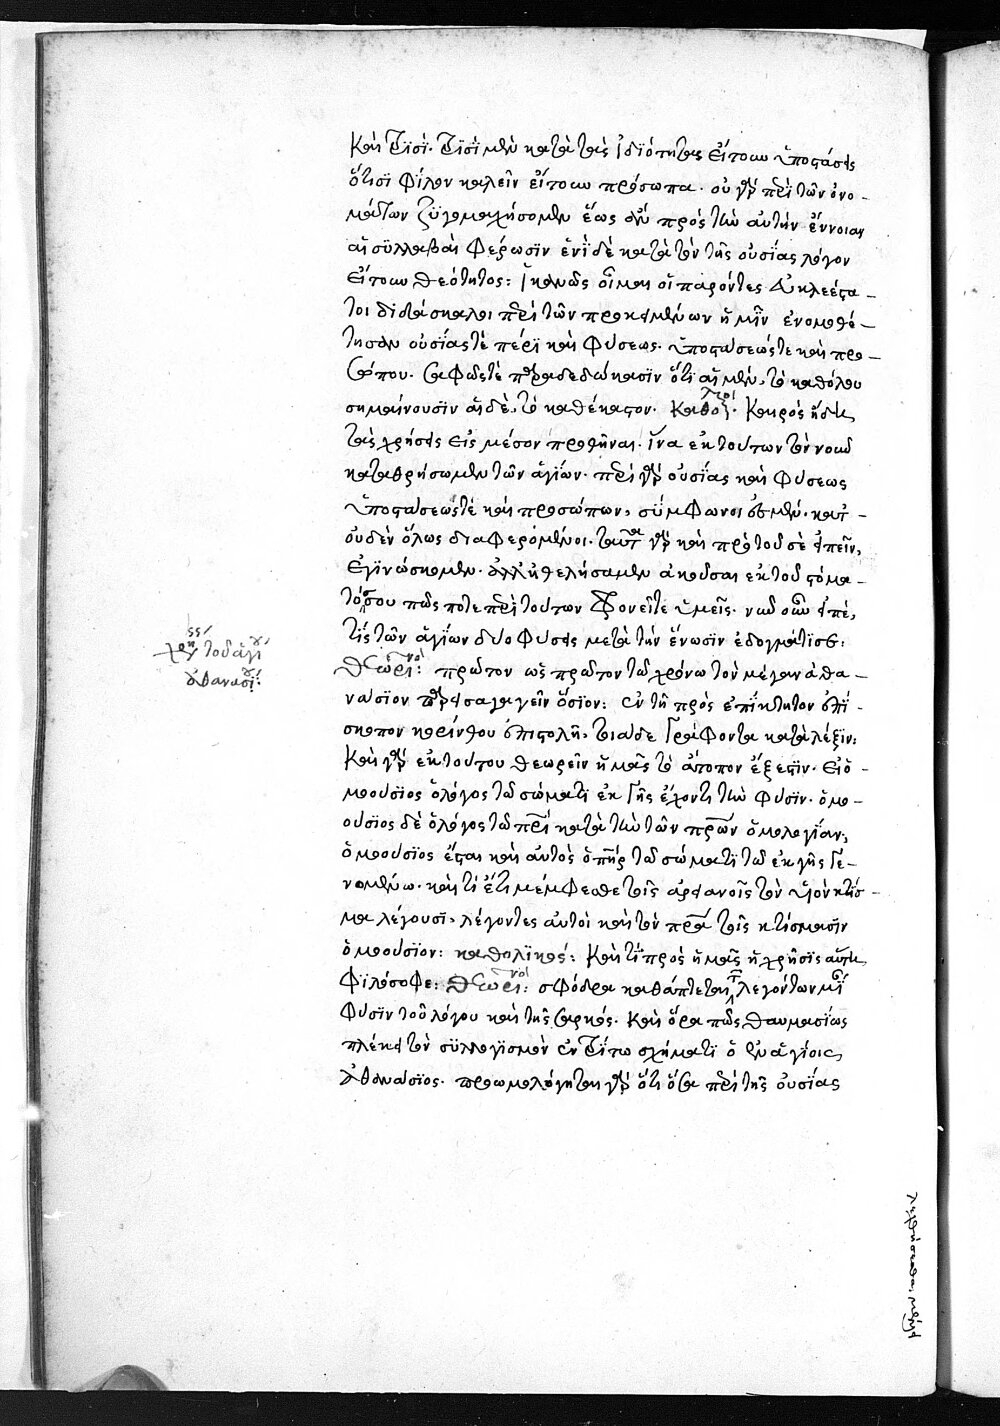 καὶ τρισί. τρισὶ μὲν κατὰ τὰς ἰδιότητας εἴτουν ὑποστάσεις
ὅτισι φίλον καλεῖν εἴτουν πρόσωπα. οὐ γὰρ περὶ τῶν ὀνο-
μάτων ζυγομαχήσομεν ἕως ἂν πρὸς τὴν αὐτὴν ἔννοιαν
αἱ συλλαβαὶ φέρωσιν ἑνὶ δὲ κατὰ τὸν τῆς οὐσίας λόγον
εἴτουν θεότητος: ἱκανῶς οἶμαι οἱ παρόντες εὐκλεέστα-
τοι διδάσκαλοι περὶ τῶν προκειμένων ἡμῖν ἐνομοθέ-
τησαν οὐσίας τὲ πέρι καὶ φύσεως. ὑποστάσεώς τε καὶ προ-
σώπου. σαφῶς τὲ παραδεδώκασιν ὅτι αἱ μὲν, τὸ καθόλου
σημαίνουσιν αἱ δὲ, τὸ καθέκαστον. Καιρὸς ἤδη
τὰς χρήσεις εἰς μέσον προθῆναι. ἵνα ἐκ τούτων τὸν νοῦν
καταθρήσωμεν τῶν ἁγίων. περὶ γὰρ οὐσίας καὶ φύσεως
ὑποστάσεώς τὲ καὶ προσώπων, σύμφωνοι ἐσμὲν. κατ
οὐδὲν ὅλως διαφερόμενοι. ταῦτα γὰρ καὶ πρὸ τοῦ σὲ εἰπεῖν,
ἐγινώσκομεν. ἀλλ' ἠθελήσαμεν ἀκοῦσαι ἐκ τοῦ στόμα-
τός σου πῶς ποτε περὶ τούτων φρονεῖτε ὑμεῖς. νῦν οὖν εἰπὲ,
τίς τῶν ἁγίων δύο φύσεις μετὰ τὴν ἕνωσιν ἐδογμάτισε:
πρῶτον ὡς πρῶτον τῷ χρόνω τὸν μέγαν ἀθα-
νάσιον παρεισαγαγεῖν ὅσιον: ἐν τῇ πρὸς ἐπίκτητον ἐπί-
σκοπον κορίνθου ἐπιστολῇ, τιάδε γράφοντα κατὰ λέξιν:
Καὶ γὰρ ἐκ τούτου θεωρεῖν ἡμᾶς τὸ ἄτοπον ἔξεστιν. εἰ ὁ-
μοούσιος ὁ λόγος τῷ σώματι ἐκ γῆς ἔχοντι τὴν φύσιν. ὁμο-
ούσιος δὲ ὁ λόγος τῷ πρὶ κατὰ τὴν τῶν πρων ὁμολογίαν,
ὁμοούσιος ἔσται καὶ αὐτὸς ὁ πὴρ τῷ σώματι τῷ ἐκ γῆς γε-
νομένω. καὶ τί ἔτι μέμφεσθε τοῖς ἀρειανοῖς τὸν υἱὸν κτίσ-
μα λέγουσι, λέγοντες αὐτοὶ καὶ τὸν πρα τοῖς κτίσμασιν
ὁμοούσιον: καθολικός: Καὶ τί πρὸς ἡμᾶς ἡ χρῆσις αὕτη
φιλόσοφε: σφόδρα καθάπτεται τ λεγόντων μίαν
φύσιν τοῦ λόγου καὶ τῆς σαρκός. καὶ ὅρα πῶς θαυμασίως
πλέκει τὸν συλλογισμὸν ἐν τρίτω σχήματι ὁ ἐν ἁγίοις
ἀθανάσιος. προωμολόγηται γὰρ ὅτι ὅσα περὶ τῆς οὐσίας
χρη τοῦ ἁγί
ἀθανασί: